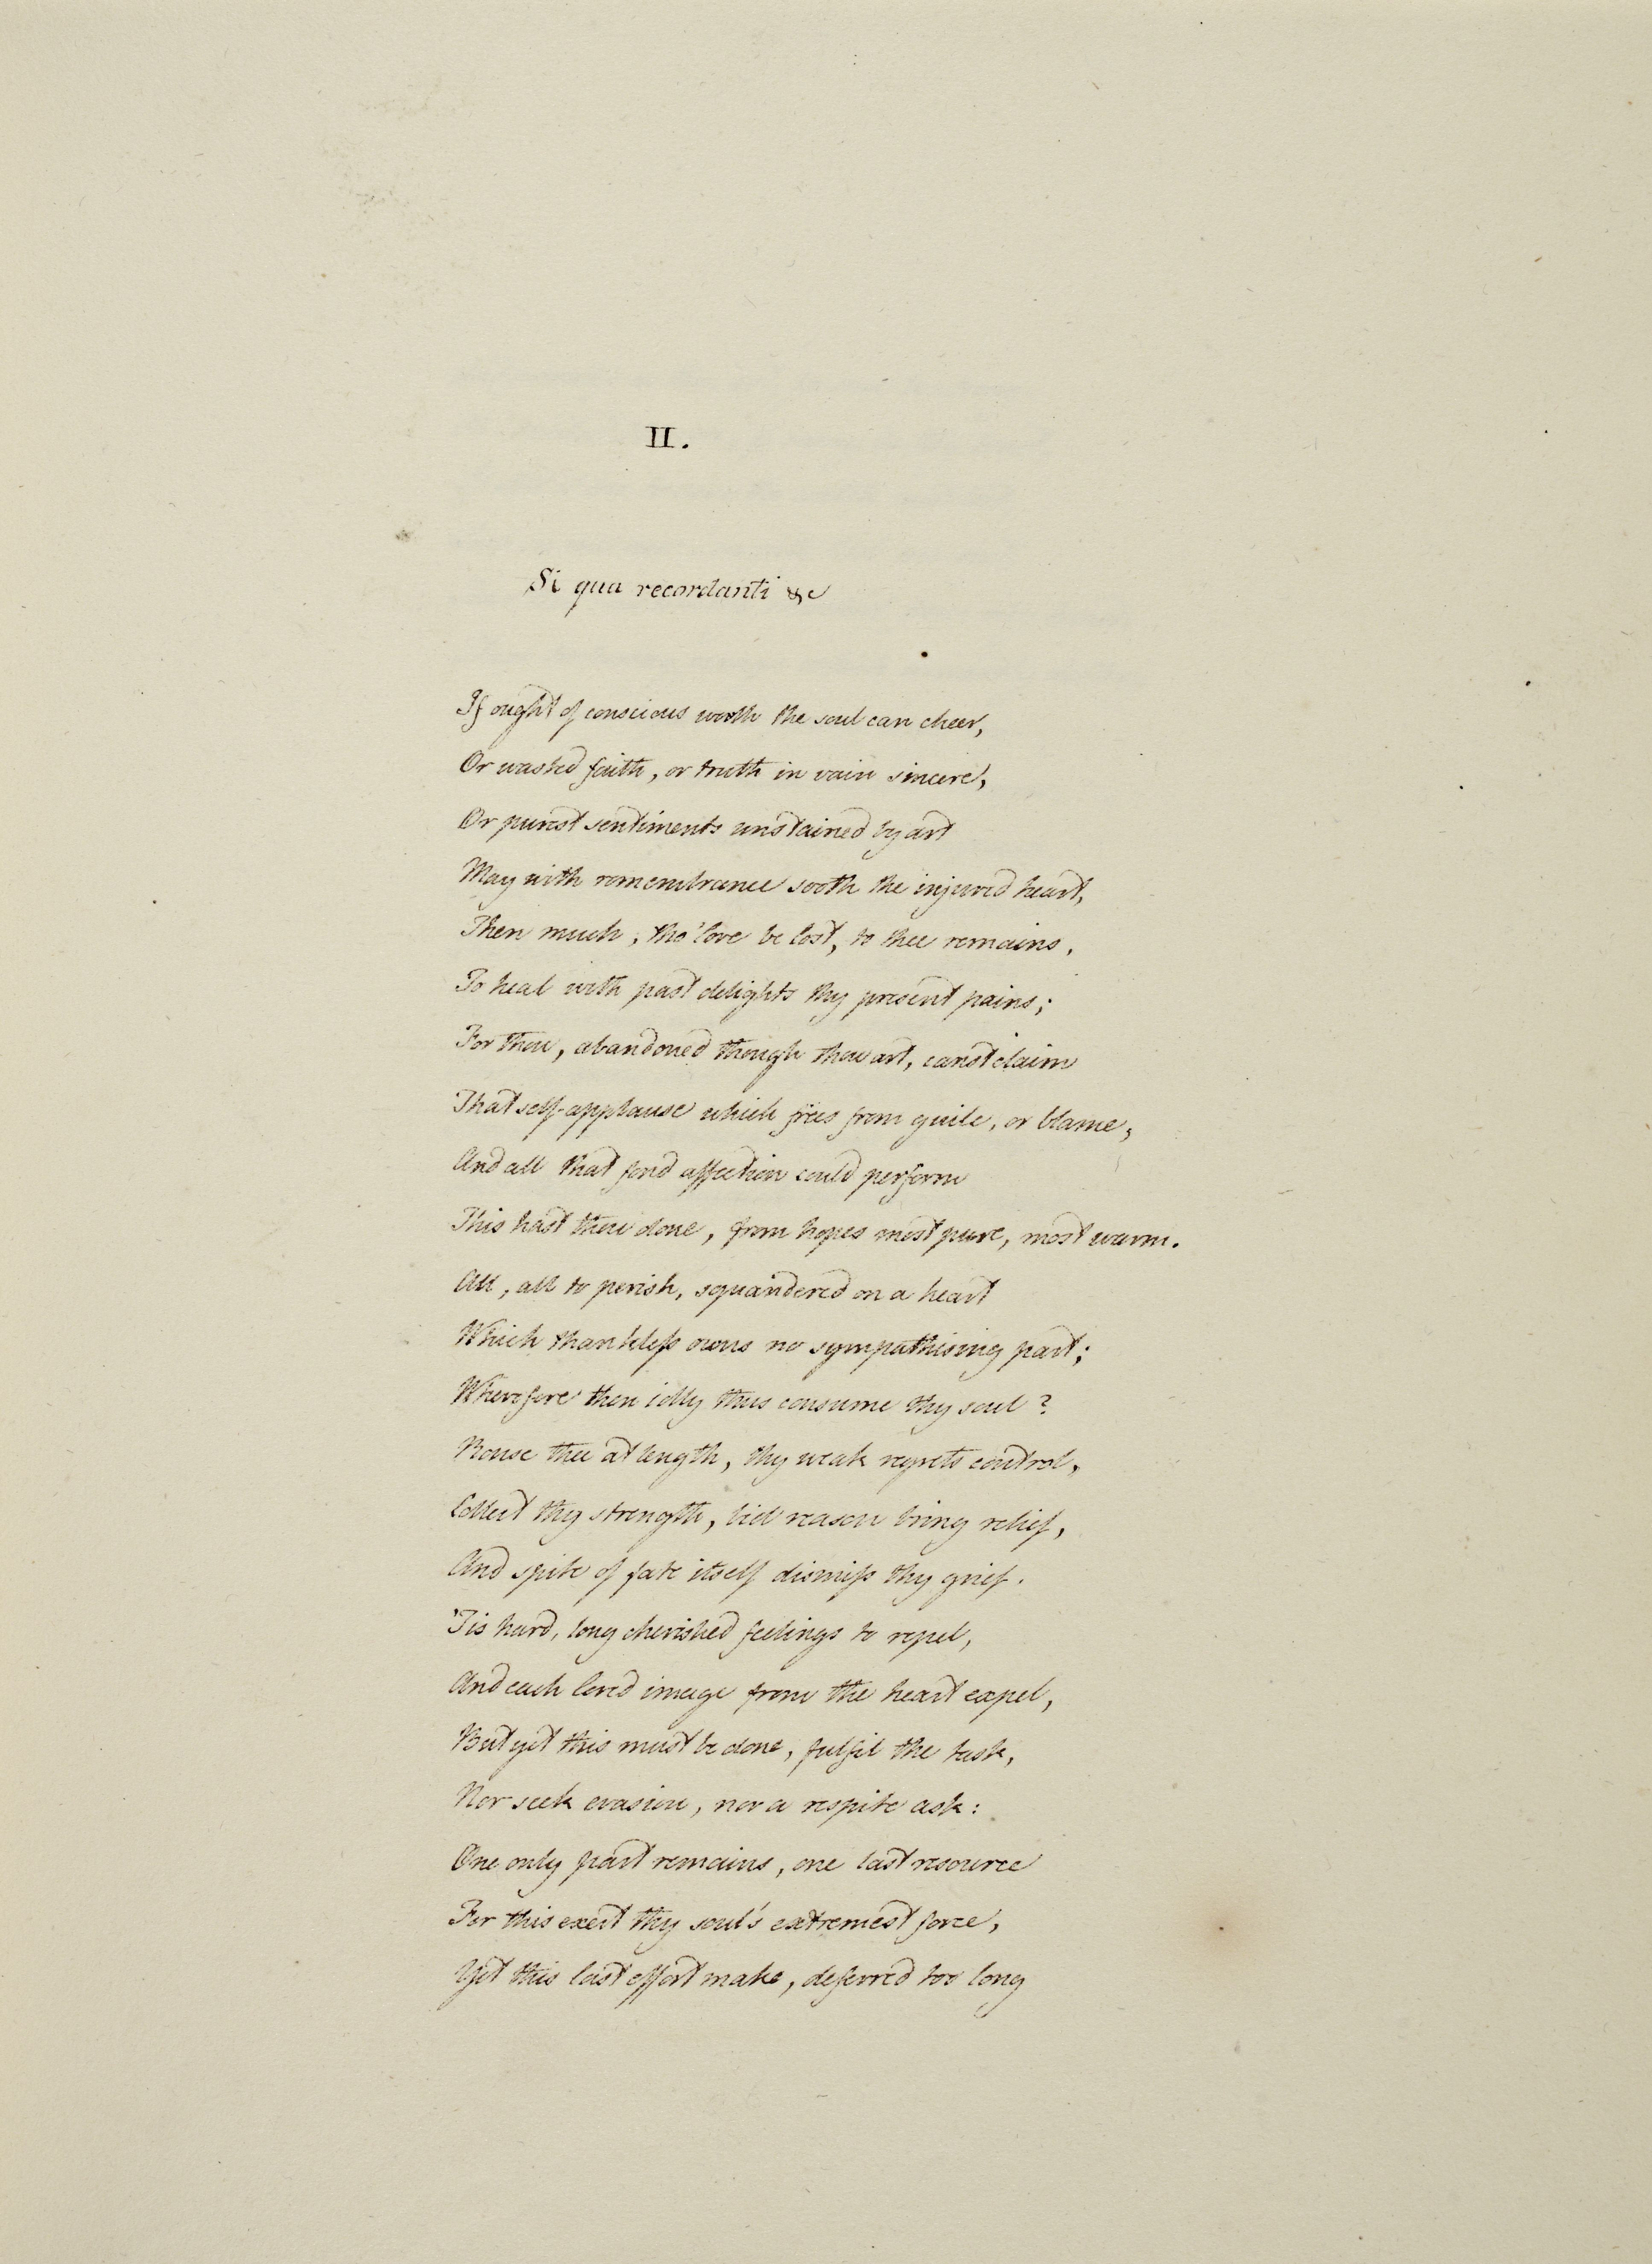 II.
Si qua recordanti &c
If ought of conscious worth the soul can cheer,
Or wasted faith, or truth in vain sincere,
Or purest sentiments unstained by art
May with remembrance sooth the injured heart,
Then much, tho' love be lost, to thee remains,
To heal with past delights thy present pains;
For thou, abandoned though thou art, canst claim
That self-applause which frees from guile, or blame,
And all that fond affection could perform
This hast thou done, from hopes most pure, most warm.
All, all to perish, squandered on a heart
Which thankless owns no sympathising part;
Wherefore then idly thus consume thy soul?
Rouse thee at length, thy weak regrets control,
Collect thy strength, bid reason bring relief,
And spite of fate itself dismiss thy grief.
'Tis hard, long cherished feelings to repel,
And each loved image from the heart expel,
But yet this must be done, fulfil the task,
Nor seek evasion, nor a respite ask:
One only part remains, one last resource
For this exert thy soul's extremest force,
Yet this last effort make, deferred too long